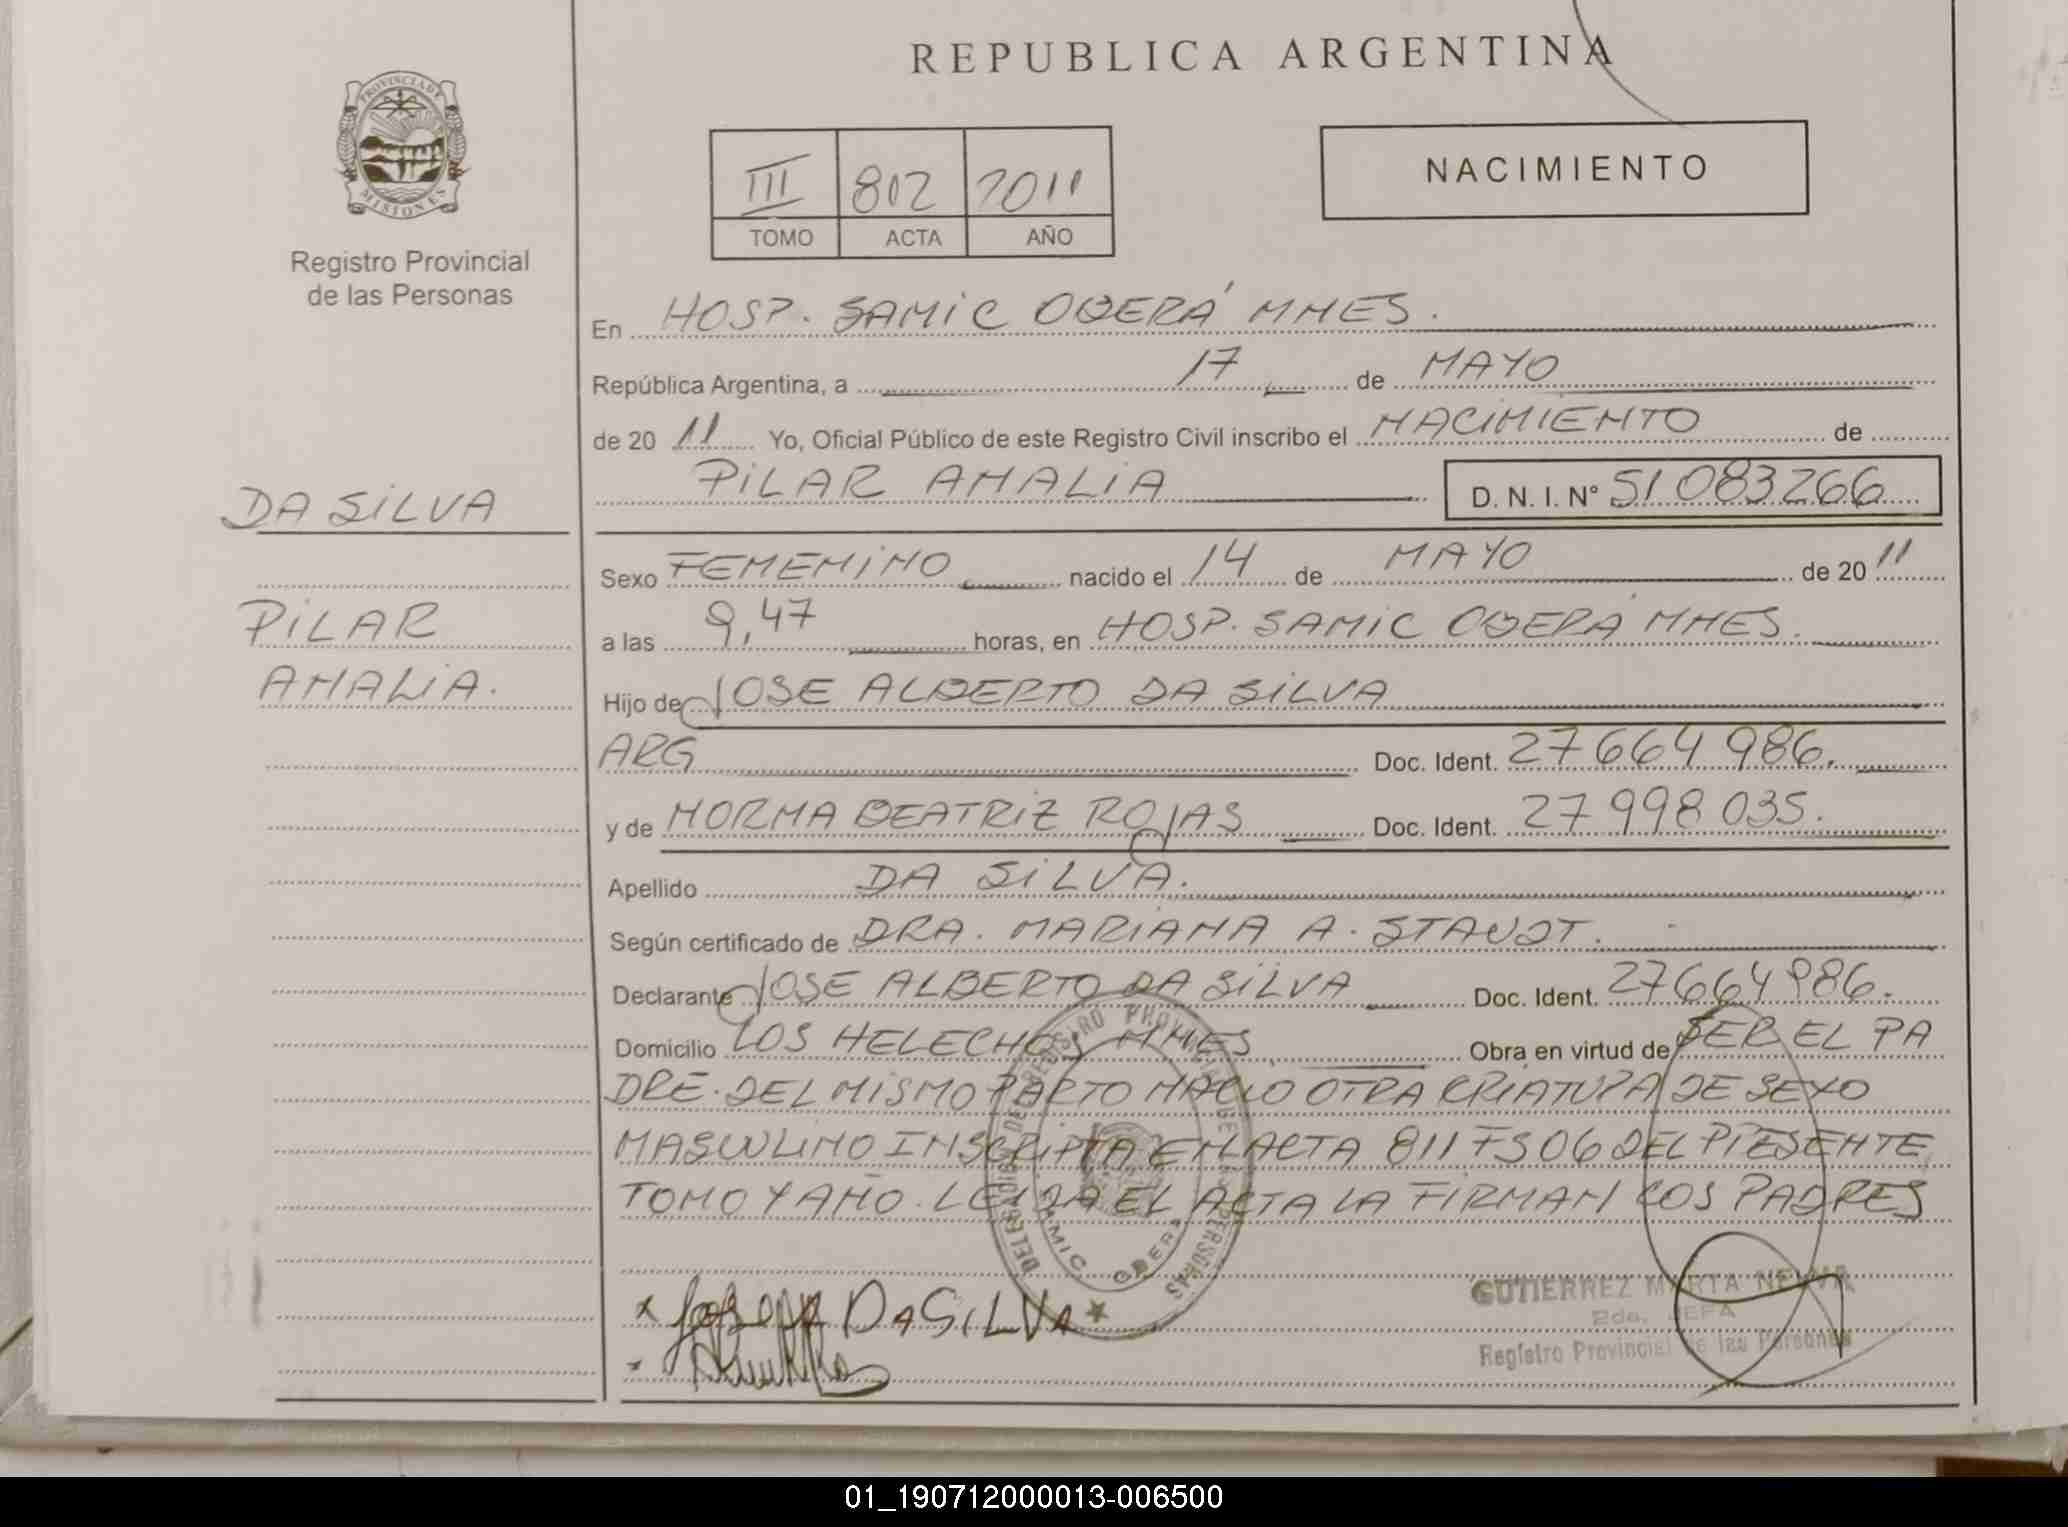 REPUBLICA ARGENTINA
PROVINCIA DE
MISIONES
Registro Provincial
de las Personas
III 802 2011
TOMO ACTA AÑO
NACIMIENTO
En HOSP. SAMIC OBERÁ MNES.
República Argentina, a 17 de MAYO
de 20 11 Yo, Oficial Público de este Registro Civil inscribo el NACIMIENTO de
PILAR AMALIA D. N. I. Nº 51 083266
DA SILVA
PILAR
AMALIA.
Sexo FEMENINO nacido el 14 de MAYO de 20 11
a las 9,47 horas, en HOSP. SAMIC OBERÁ MNES.
Hijo de JOSE ALBERTO DA SILVA
ARG Doc. Ident. 27 664 986.
y de NORMA BEATRIZ ROJAS Doc. Ident. 27 998 035.
Apellido DA SILVA.
Según certificado de DRA. MARIANA A. STAUDT.
Declarante JOSE ALBERTO DA SILVA Doc. Ident. 27664986.
Domicilio LOS HELECHOS MNES Obra en virtud de SER EL PA
DRE. DEL MISMO PARTO NACIO OTRA CRIATURA DE SEXO
MASCULINO INSCRIPTA EN ACTA 811 FS 06 DEL PRESENTE
TOMO Y AÑO. LEIDA EL ACTA LA FIRMAN LOS PADRES
x DASILVA
GUTIERREZ MARTA
2da. JEFA
Registro Provincial de las Personas
SAMIC OBERA
01_190712000013-006500